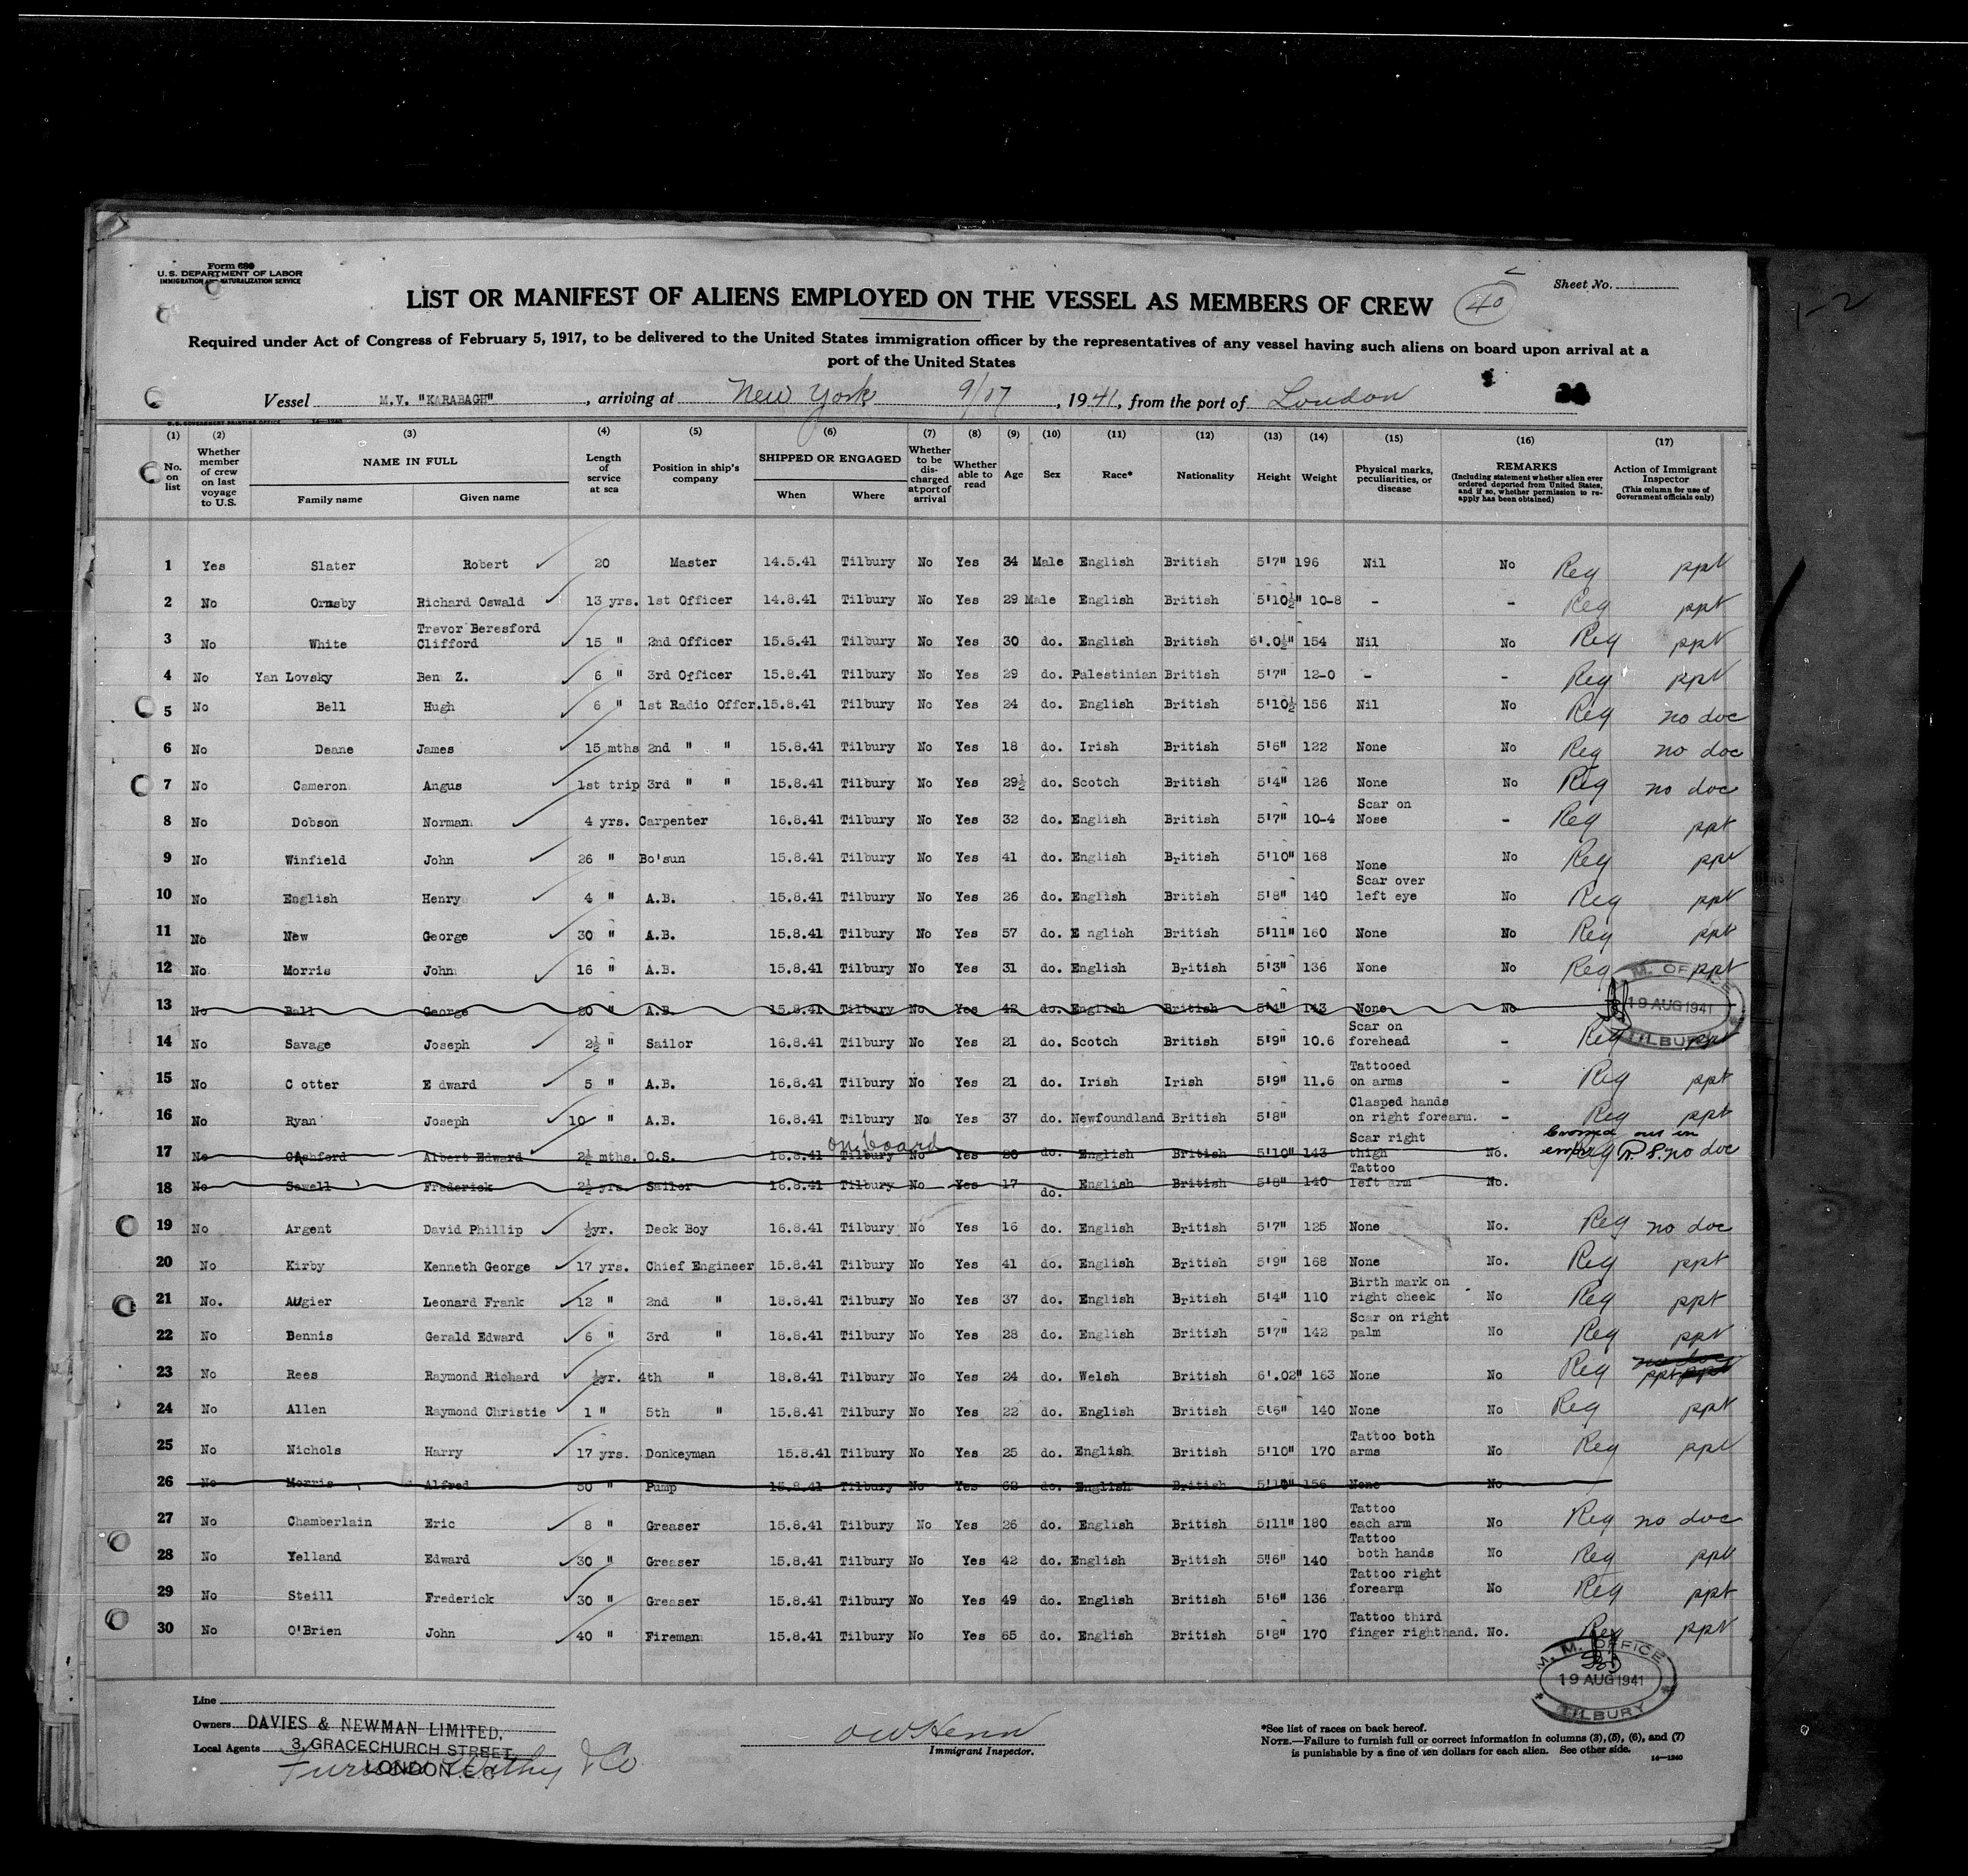 Form 680
U. S. DEPARTMENT OF LABOR
IMMIGRATION AND NATURALIZATION SERVICE
Sheet No.
LIST OR MANIFEST OF ALIENS EMPLOYED ON THE VESSEL AS MEMBERS OF CREW 40
Required under Act of Congress of February 5, 1917, to be delivered to the United States immigration officer by the representatives of any vessel having such aliens on board upon arrival at a
port of the United States
Vessel M.V. "KARABAGH", arriving at New York 9/17, 1941, from the port of London
U. S. GOVERNMENT PRINTING OFFICE 14—1240
(1) (2) (3) (4) (5) (6) (7) (8) (9) (10) (11) (12) (13) (14) (15) (16) (17)
No. on list Whether member of crew on last voyage to U.S. NAME IN FULL Family name Given name Length of service at sea Position in ship's company SHIPPED OR ENGAGED When Where Whether to be discharged at port of arrival Whether able to read Age Sex Race* Nationality Height Weight Physical marks, peculiarities, or disease REMARKS (Including statement whether alien ever ordered deported from United States, and if so, whether permission to re-apply has been obtained) Action of Immigrant Inspector (This column for use of Government officials only)
1 Yes Slater Robert 20 Master 14.5.41 Tilbury No Yes 34 Male English British 5'7" 196 Nil No Reg ppt
2 No Ormsby Richard Oswald 13 yrs. 1st Officer 14.8.41 Tilbury No Yes 29 Male English British 5'10½" 10-8 - - Reg ppt
3 No White Trevor Beresford Clifford 15 " 2nd Officer 15.8.41 Tilbury No Yes 30 do. English British 6'.0½" 154 Nil No Reg ppt
4 No Yan Lovsky Ben Z. 6 " 3rd Officer 15.8.41 Tilbury No Yes 29 do. Palestinian British 5'7" 12-0 - - Reg ppt
5 No Bell Hugh 6 " 1st Radio Offcr. 15.8.41 Tilbury No Yes 24 do. English British 5'10½ 156 Nil No Reg no doc
6 No Deane James 15 mths 2nd " " 15.8.41 Tilbury No Yes 18 do. Irish British 5'6" 122 None No Reg no doc
7 No Cameron Angus 1st trip 3rd " " 15.8.41 Tilbury No Yes 29½ do. Scotch British 5'4" 126 None No Reg no doc
8 No Dobson Norman 4 yrs. Carpenter 16.8.41 Tilbury No Yes 32 do. English British 5'7" 10-4 Scar on Nose - Reg ppt
9 No Winfield John 26 " Bo'sun 15.8.41 Tilbury No Yes 41 do. English British 5'10" 168 None No Reg ppt
10 No English Henry 4 " A.B. 15.8.41 Tilbury No Yes 26 do. English British 5'8" 140 Scar over left eye No Reg ppt
11 No New George 30 " A.B. 15.8.41 Tilbury No Yes 57 do. E nglish British 5'11" 160 None No Reg ppt
12 No Morris John 16 " A.B. 15.8.41 Tilbury No Yes 31 do. English British 5'3" 136 None No Reg ppt
13 No Ball George 20 " A.B. 15.8.41 Tilbury No Yes 42 do. English British 5'4" 143 None No
M. OFFICE 19 AUG 1941 TILBURY
14 No Savage Joseph 2½ " Sailor 16.8.41 Tilbury No Yes 21 do. Scotch British 5'9" 10.6 Scar on forehead - Reg ppt
15 No C otter E dward 5 " A.B. 16.8.41 Tilbury No Yes 21 do. Irish Irish 5'9" 11.6 Tattooed on arms - Reg ppt
16 No Ryan Joseph 10 " A.B. 16.8.41 Tilbury No Yes 37 do. Newfoundland British 5'8" Clasped hands on right forearm. - Reg ppt
on board
17 No CAshford Albert Edward 2½ mths. O.S. 16.8.41 Tilbury No Yes 20 do. English British 5'10" 143 Scar right thigh No. Crossed out in error Reg no doc
18 No Sewell Frederick 2½ yrs. Sailor 16.8.41 Tilbury No Yes 17 do. English British 5'8" 140 Tattoo left arm No.
19 No Argent David Phillip ½yr. Deck Boy 16.8.41 Tilbury No Yes 16 do. English British 5'7" 125 None No. Reg no doc
20 No Kirby Kenneth George 17 yrs. Chief Engineer 15.8.41 Tilbury No Yes 41 do. English British 5'9" 168 None No. Reg ppt
21 No. Augier Leonard Frank 12 " 2nd " 18.8.41 Tilbury No Yes 37 do. English British 5'4" 110 Birth mark on right cheek No Reg ppt
22 No Bennis Gerald Edward 6 " 3rd " 18.8.41 Tilbury No Yes 28 do. English British 5'7" 142 Scar on right palm No Reg ppt
23 No Rees Raymond Richard ½yr. 4th " 18.8.41 Tilbury No Yes 24 do. Welsh British 6'.02" 163 None No Reg no doc ppt ppt
24 No Allen Raymond Christie 1 " 5th " 15.8.41 Tilbury No Yes 22 do. English British 5'6" 140 None No Reg ppt
25 No Nichols Harry 17 yrs. Donkeyman 15.8.41 Tilbury No Yes 25 do. English British 5'10" 170 Tattoo both arms No Reg ppt
26 No Morris Alfred 50 " Pump 15.8.41 Tilbury No Yes 62 do. English British 5'10" 156 None No
27 No Chamberlain Eric 8 " Greaser 15.8.41 Tilbury No Yes 26 do. English British 5'11" 180 Tattoo each arm No Reg no doc
28 No Yelland Edward 30 " Greaser 15.8.41 Tilbury No Yes 42 do. English British 5"6" 140 Tattoo both hands No Reg ppt
29 No Steill Frederick 30 " Greaser 15.8.41 Tilbury No Yes 49 do. English British 5'6" 136 Tattoo right forearm No Reg ppt
30 No O'Brien John 40 " Fireman 15.8.41 Tilbury No Yes 65 do. English British 5'8" 170 Tattoo third finger righthand. No. Reg ppt
M. M. OFFICE 19 AUG 1941 TILBURY
Line
Owners DAVIES & NEWMAN LIMITED,
Local Agents 3, GRACECHURCH STREET,
LONDON E.C.
Furness Withy & Co
Immigrant Inspector.
*See list of races on back hereof.
NOTE.—Failure to furnish full or correct information in columns (3), (5), (6), and (7)
is punishable by a fine of ten dollars for each alien. See other side. 14—1240
1-2